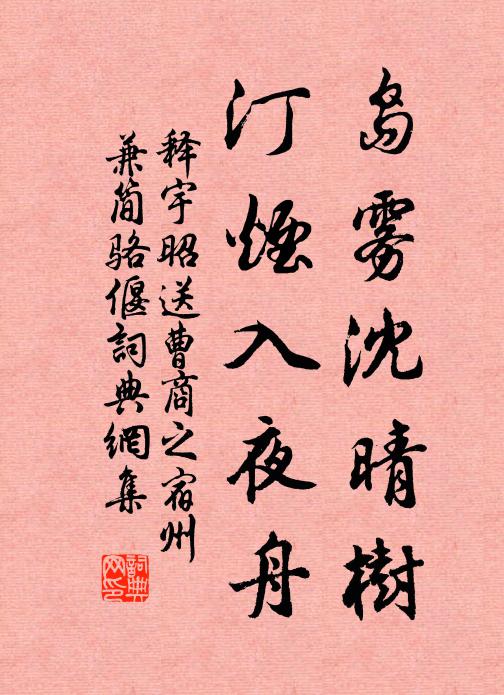 岛雾沈晴樹
汀煙入夜舟
释宇昭送曹商之宿州
兼简骆偃詞典網集
詞典
网印